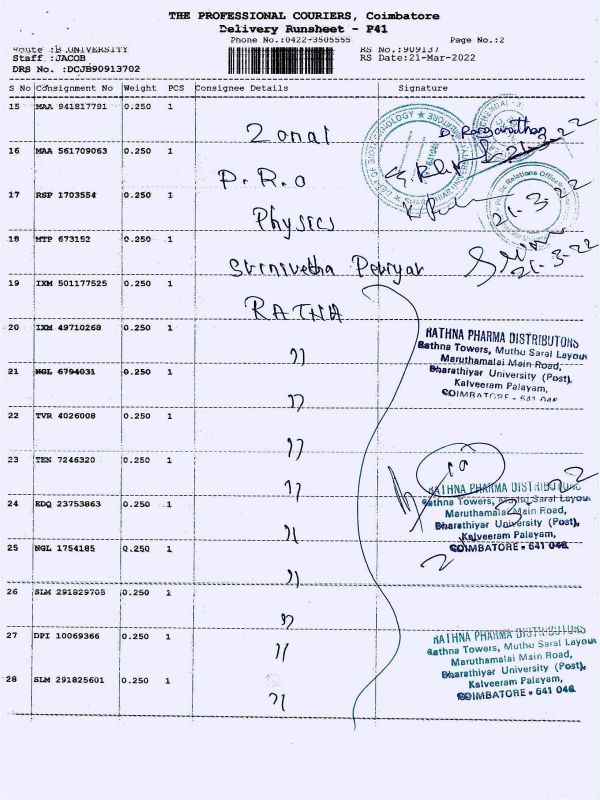 THE PROFESSIONAL COURIERS, Coimbatore
Delivery Runsheet - P41
Phone No.:0422-3505555 Page No.:2
Route :B.UNIVERSITY RS No.:909137
Staff :JACOB RS Date:21-Mar-2022
DRS No. :DCJB90913702
S No Consignment No Weight PCS Consignee Details Signature
15 MAA 941817791 0.250 1
Zonal
D. Ranganathan
16 MAA 561709063 0.250 1
P.R.O
17 RSP 1703554 0.250 1
Physics
21-3-22
18 MTP 673152 0.250 1
Srinivetha Periyar
21-3-22
19 IXM 501177525 0.250 1
RATNA
20 IXM 49710268 0.250 1
RATHNA PHARMA DISTRIBUTORS
Rathna Towers, Muthu Saral Layout
Maruthamalai Main Road,
Bharathiyar University (Post),
Kalveeram Palayam,
COIMBATORE - 641 046
21 NGL 6794031 0.250 1
22 TVR 4026008 0.250 1
23 TEN 7246320 0.250 1
RATHNA PHARMA DISTRIBUTORS
Rathna Towers, Muthu Saral Layout
Maruthamalai Main Road,
Bharathiyar University (Post),
Kalveeram Palayam,
COIMBATORE - 641 046
24 EDQ 23753863 0.250 1
25 NGL 1754185 0.250 1
26 SLM 291829705 0.250 1
27 DPI 10069366 0.250 1
RATHNA PHARMA DISTRIBUTORS
Rathna Towers, Muthu Saral Layout
Maruthamalai Main Road,
Bharathiyar University (Post),
Kalveeram Palayam,
COIMBATORE - 641 046
28 SLM 291825601 0.250 1